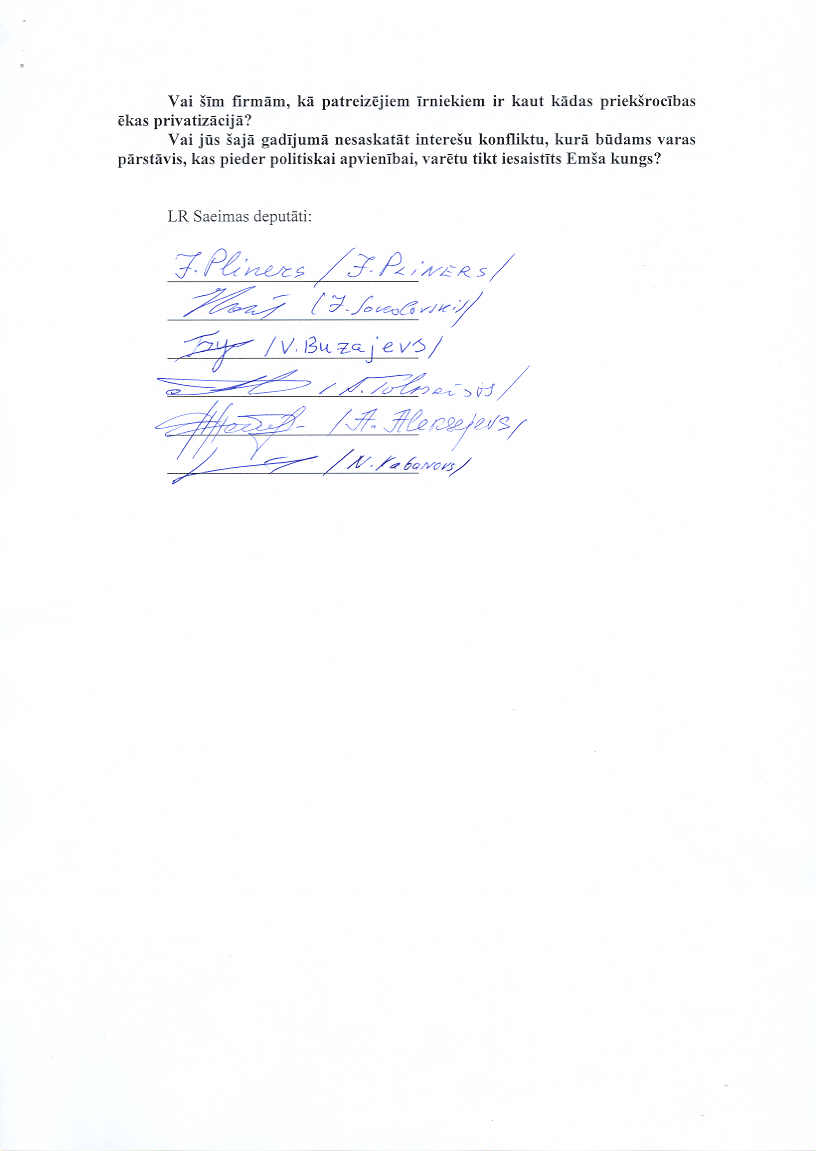 Vai šīm firmām, kā patreizējiem īrniekiem ir kaut kādas priekšrocības
ēkas privatizācijā?
Vai jūs šajā gadījumā nesaskatāt interešu konfliktu, kurā būdams varas
pārstāvis, kas pieder politiskai apvienībai, varētu tikt iesaistīts Emša kungs?
LR Saeimas deputāti:
J. Pliners /J. PLINERS/
(J. Sokolovskis/
/V. Buzajevs/
/A. Tolmačovs/
/A. Aleksejevs/
/N. Kabanovs/